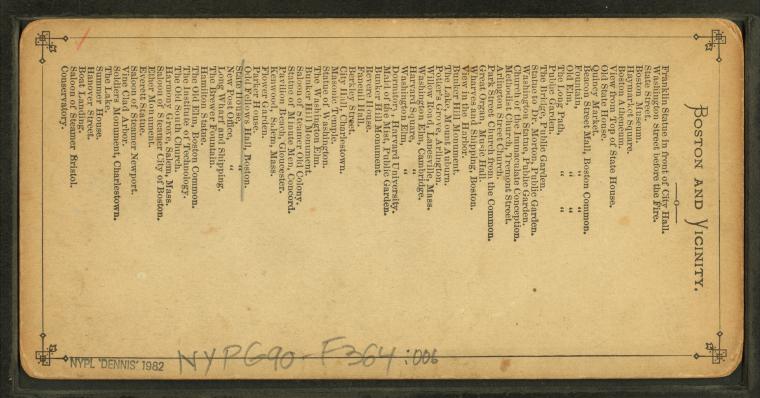 BOSTON AND VICINITY.
Franklin Statue in front of City Hall.
Washington Street before the Fire.
State Street.
Boston Museum.
Haymarket Square.
Boston Atheneum.
View from Top of State House.
Old State House.
Quincy Market.
Beacon Street Mall, Boston Common.
Fountain, " "
Old Elm, " "
The Long Path, " "
Public Garden.
The Bridge, Public Garden.
Statue to Morton, Public Garden.
Washington Statue, Public Garden.
Church of the Immaculate Conception.
Methodist Church, Tremont Street.
Arlington Street Church.
Park Street Church from the Common.
Great Organ, Music Hall.
Wharves and Shipping, Boston.
View in the Harbor.
Bunker Hill Monument.
The Lake, Mount Auburn.
Potter's Grove, Arlington.
Willow Road, Lanesville, Mass.
Washington Elm, Cambridge.
Harvard Square, "
Washington Elm, "
Dormitory, Harvard University.
Maid of the Mist, Public Garden.
Bunker Hill Monument.
Revere House.
Faneuil Hall.
Berkeley Street.
City Hall, Charlestown.
Masonic Temple.
Statue of Washington.
The Washington Elm.
Bunker Hill Monument.
Saloon of Steamer Old Colony.
Statue of Minute Men, Concord.
Pavilion Beach, Gloucester.
Kenwood, Salem, Mass.
Flower Garden.
Parker House.
Odd Fellows Hall, Boston.
State House, "
New Post Office, "
Long Wharf and Shipping.
The Brewer Fountain.
Hamilton Statue.
The Old Elm, Boston Common.
The Institute of Technology.
The Old South Church.
Harmony Grove, Salem, Mass.
Saloon of Steamer City of Boston.
Ether Monument.
Everett Statue.
Saloon of Steamer Newport.
Vine Clad Arbor.
Soldiers Monument, Charlestown.
The Lake.
Sumner House.
Hanover Street.
Boat Landing.
Saloon of Steamer Bristol.
Conservatory.
NYPL "DENNIS" 1982
NYPG90-F364:006